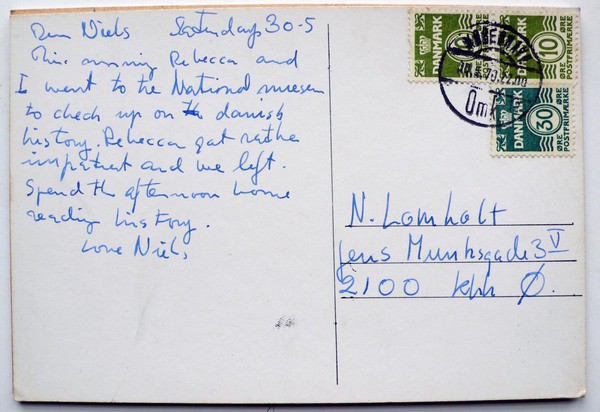 Dear Niels Saturday 30-5
This morning Rebecca and
I went to the National museum
to check up on th danish
history. Rebecca got rathe
impatient and we left.
Spend the afternoon home
reading history.
Love Niels
DANMARK
DANMARK 10 ØRE POSTFRIMÆRKE
DANMARK 30 ØRE POSTFRIMÆRKE
Omk
N. Lomholt
Jens Munksgade 3 V
2100 Kbh Ø.